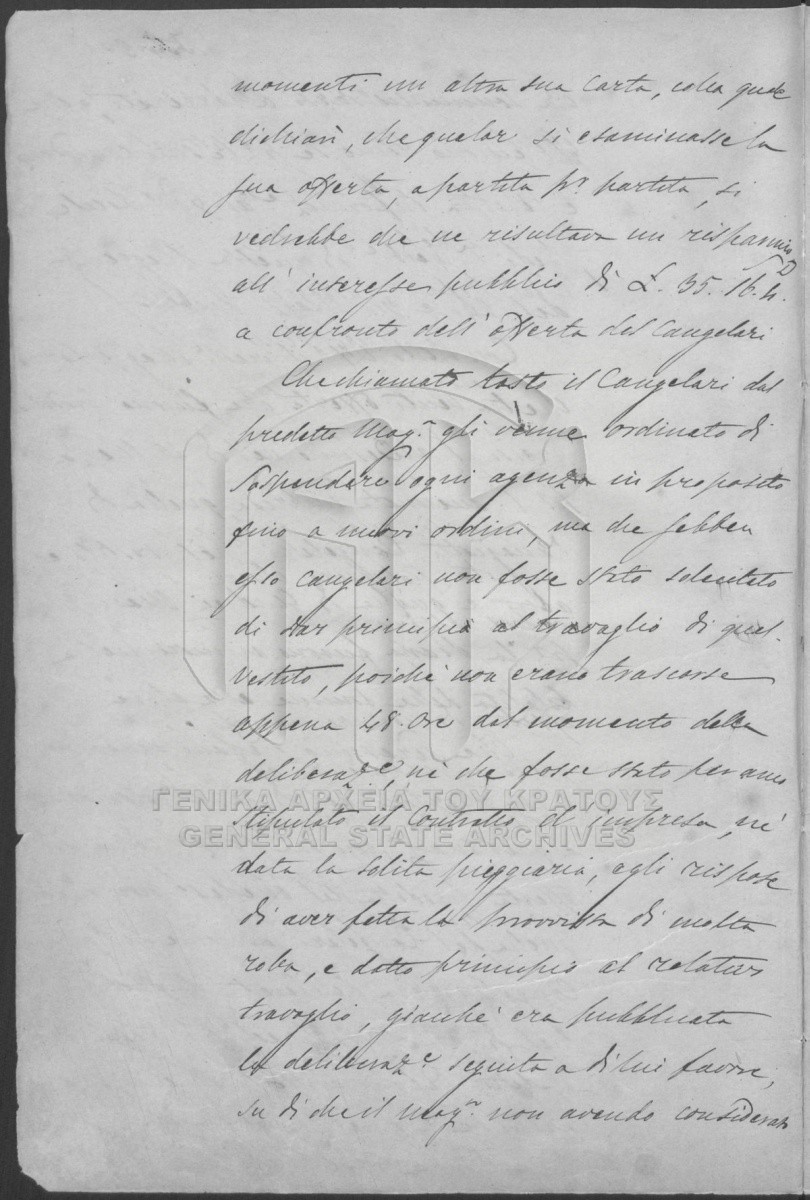 momenti un altra sua carta, colla quale
dichiarì, che qualor si esaminasse la
sua offerta, a partita pr. partita, si
vedrebbe che ne risultava un risparmio
all' interesse pubblico di £. 35. 16. 4. D
a confronto dell' offerta del Cangelari
Che chiamato tosto il Cangelari dal
predetto Magn. gli venne ordinato di
Sospendere ogni agenza in proposito
fino a nuovi ordini, ma che sebben
esso Cangelari non fosse stato solecitato
di dar principio al travaglio di quel
vestito, poichè non erano trascorse
appena 48. Ore dal momento della
deliberaz.e, nè che fosse stato per anco
stipulato il Contratto d' impresa, nè
data la solita pieggiaria, egli rispose
di aver fatta la provvista di molta
roba, e datto principio al relativo
travaglio, gianchè era pubblicata
la deliberaz.e seguita a di lui favore,
su di che il magn. non avendo considerato
ΓΕΝΙΚΑ ΑΡΧΕΙΑ ΤΟΥ ΚΡΑΤΟΥΣ
GENERAL STATE ARCHIVES